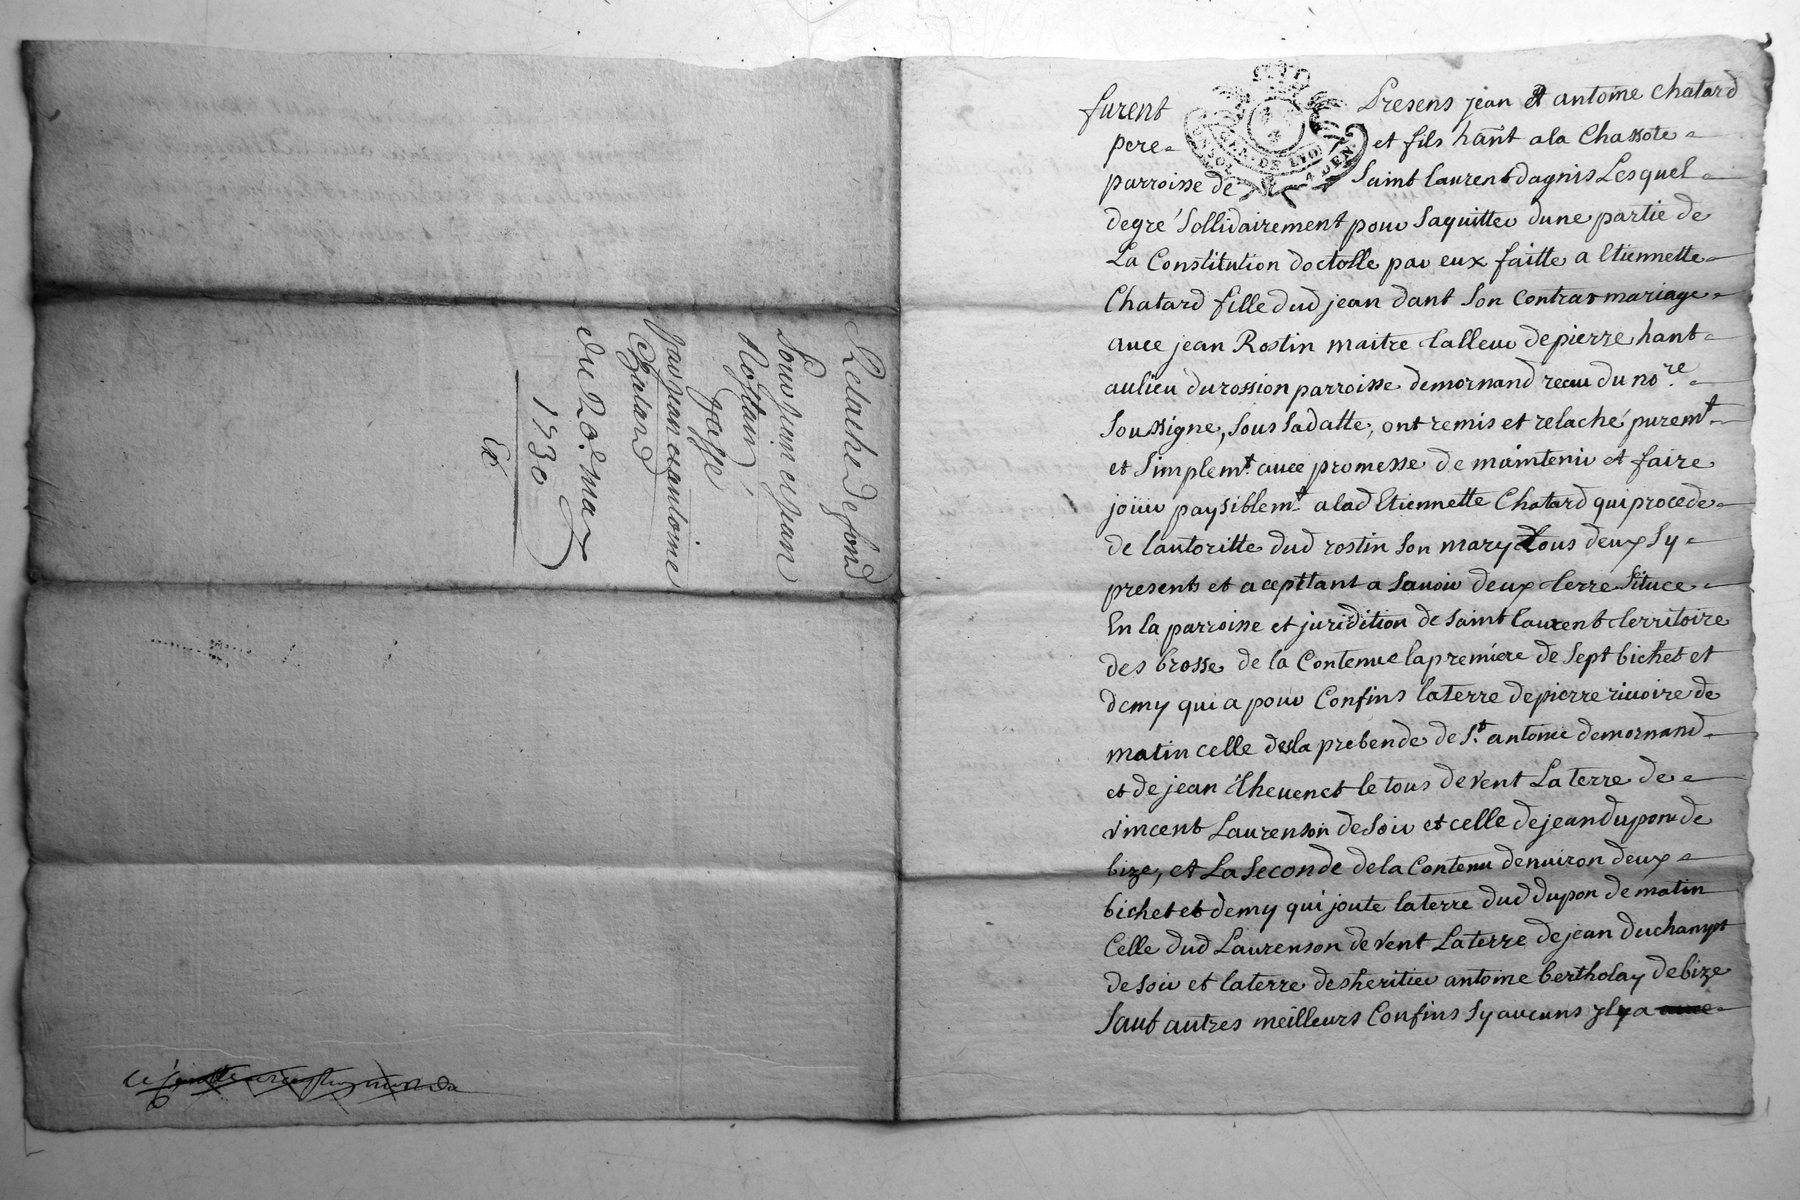 Relache de fond
pour jean et jean
Rostain
passé
par jean et antoine
Chatard
du 20e may
1730
furent Presens jean et antoine chatard
pere et fils hant a la Chassote
parroisse de Saint laurent dagnis Lesquel
degré sollidairement pour saquitter dune partie de
La Constitution doctolle par eux faitte a Etiennette
Chatard fille dud jean dant son contrat mariage
avec jean Rostin maitre talleur de pierre hant
au lieu du rossion parroisse de mornand receu du nore
soussigne, sous sa datte, ont remis et relaché puremt
et simplemt avec promesse de maintenir et faire
joüir paysiblemt a lad Etiennette Chatard qui procede
de lautoritte dud rostin son mary tous deux sy
presents et aceptant a savoir deux terre située
En la parroisse et juridition de saint laurent territoire
des brosse de la Contenue la premiere de sept bichet et
demy qui a pour Confins la terre de pierre rivoire de
matin celle de la prebende de St antoine de mornand
et de jean thevenet le tous de vent La terre de
vincent Laurenson de soir et celle de jean dupon de
bize, et La seconde de la Contenu denviron deux
bichet et demy qui joute la terre dud dupon de matin
Celle dud Laurenson de vent La terre de jean duchampt
de soir et la terre des heritier antoine bertholay de bize
sauf autres meilleurs Confins sy aucuns yl y a avec
GEN. DE LYON
4 DEN.